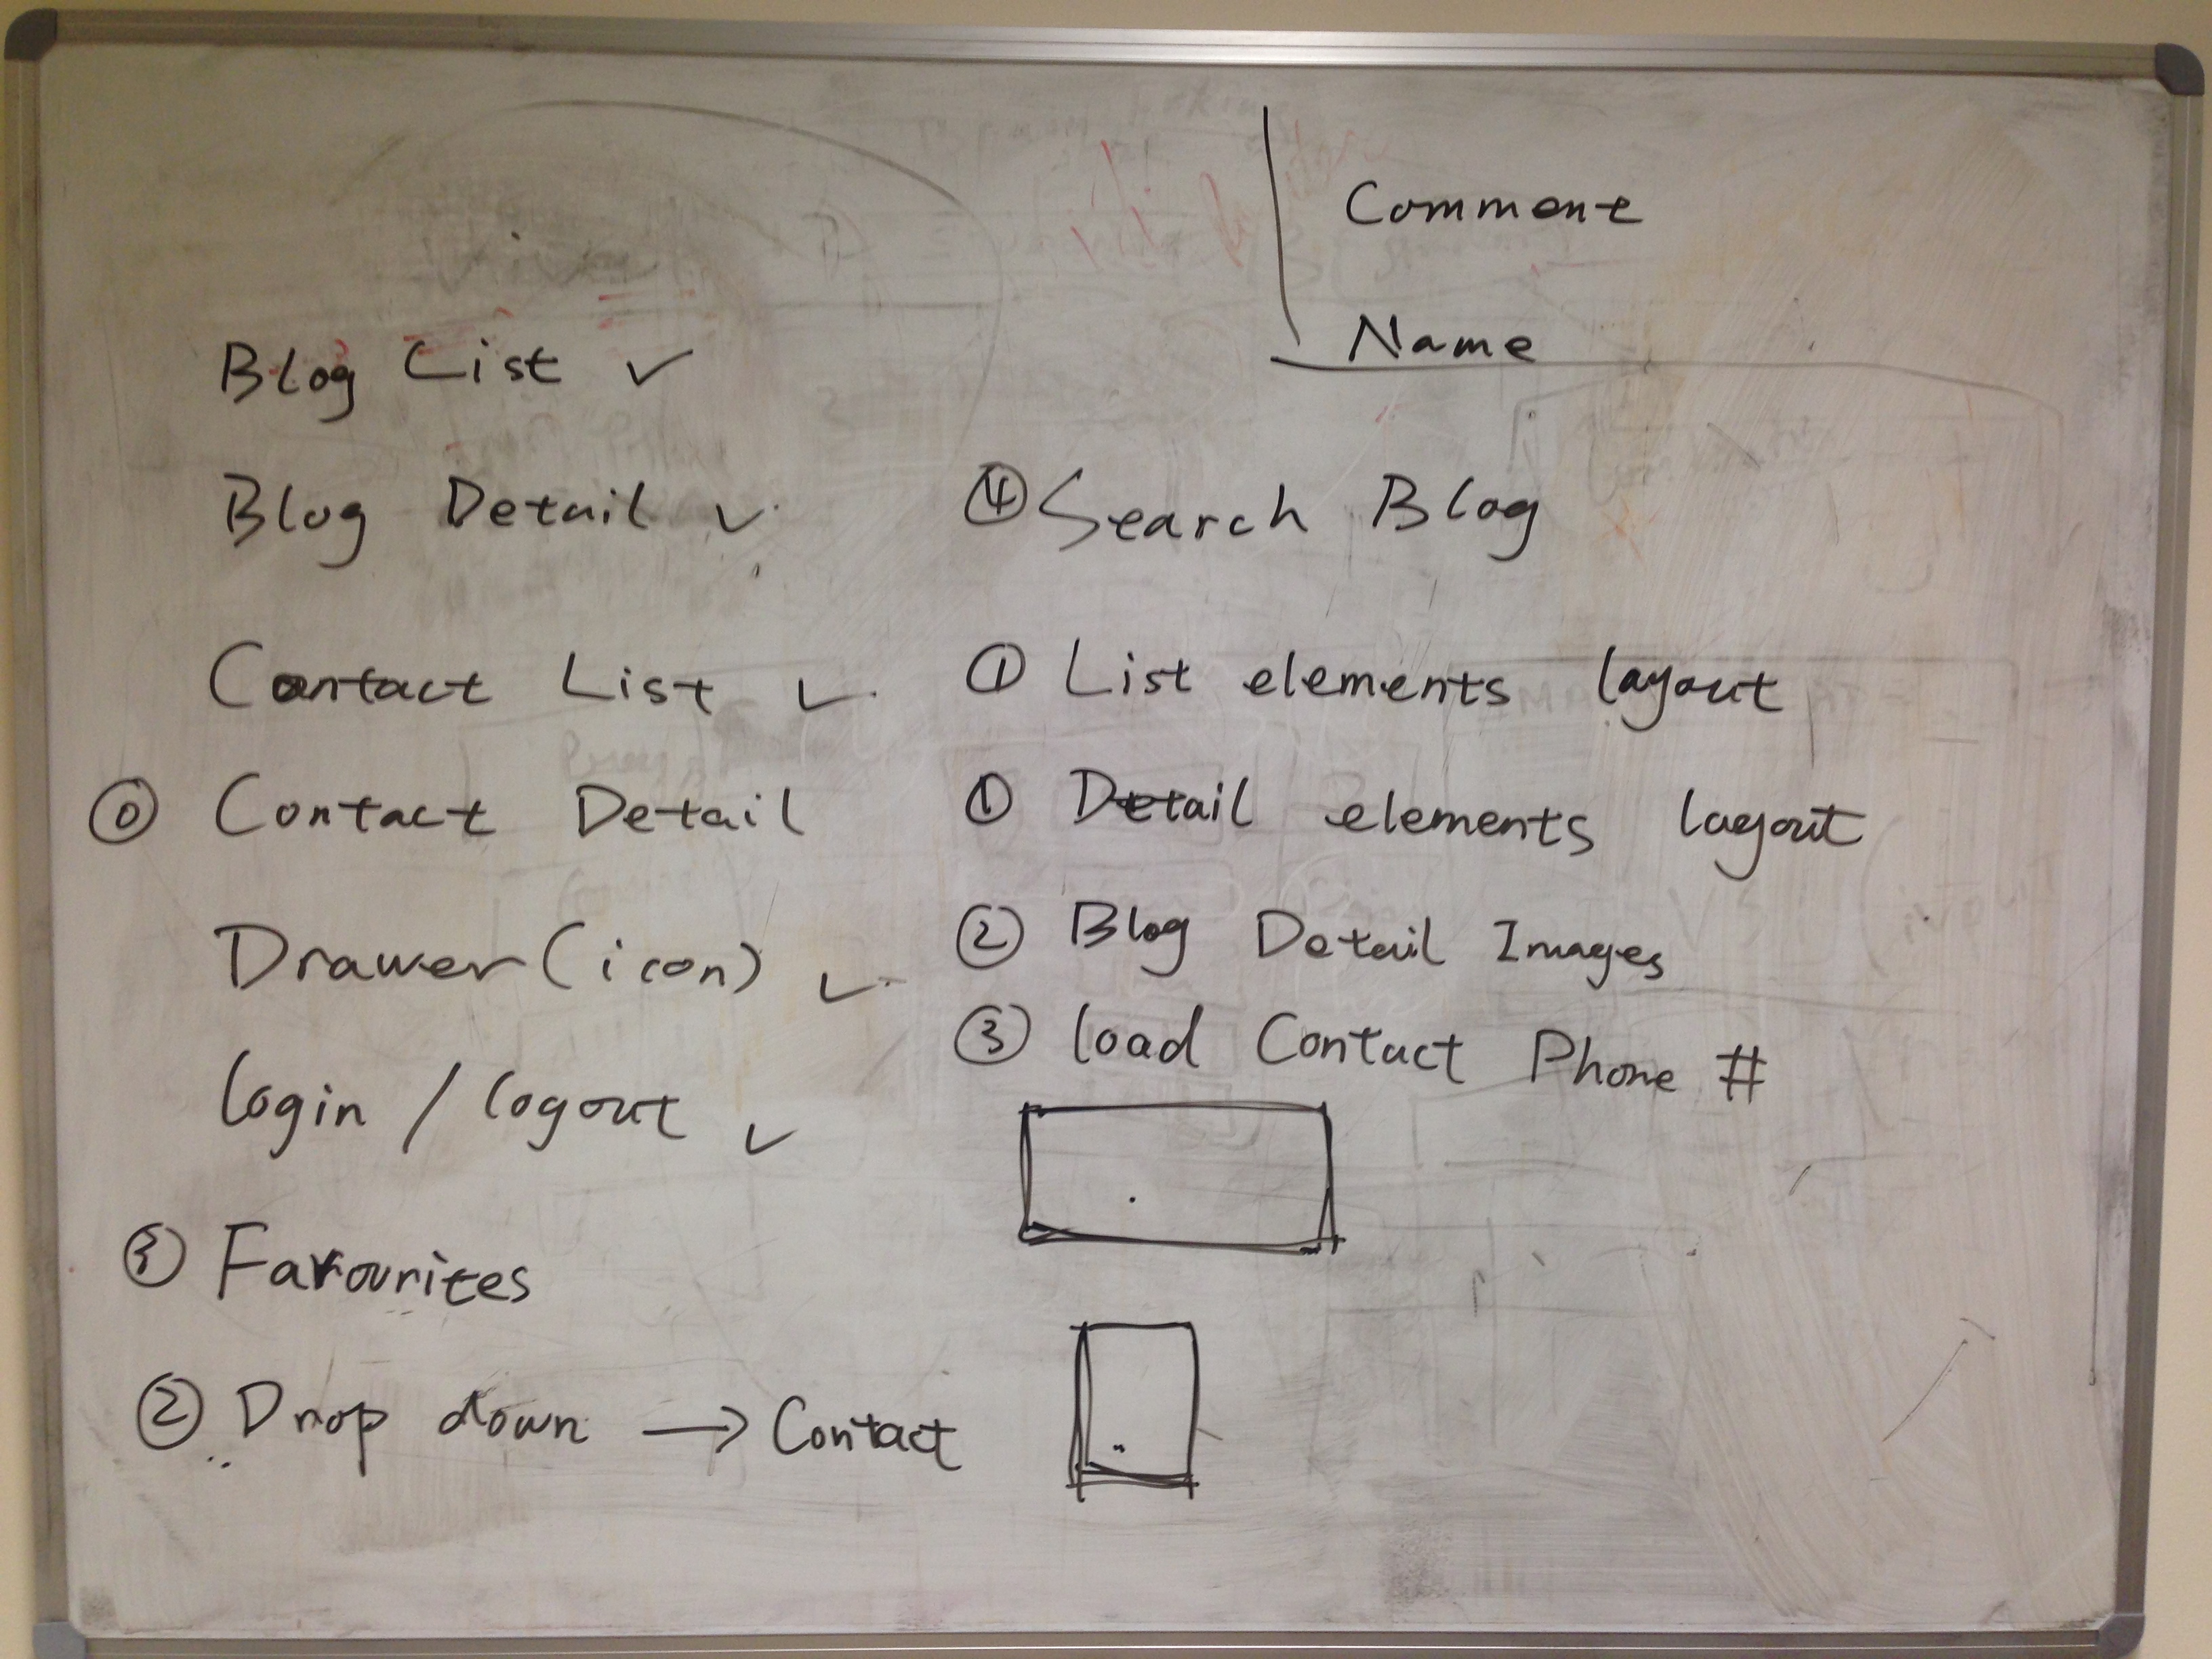 Comment
Name
Blog List ✓
Blog Detail ✓
Contact List ✓
⓪ Contact Detail
Drawer (icon) ✓
login / logout ✓
③ Favourites
② Drop down → Contact
④ Search Blog
① List elements layout
① Detail elements layout
② Blog Detail Images
③ load Contact Phone #